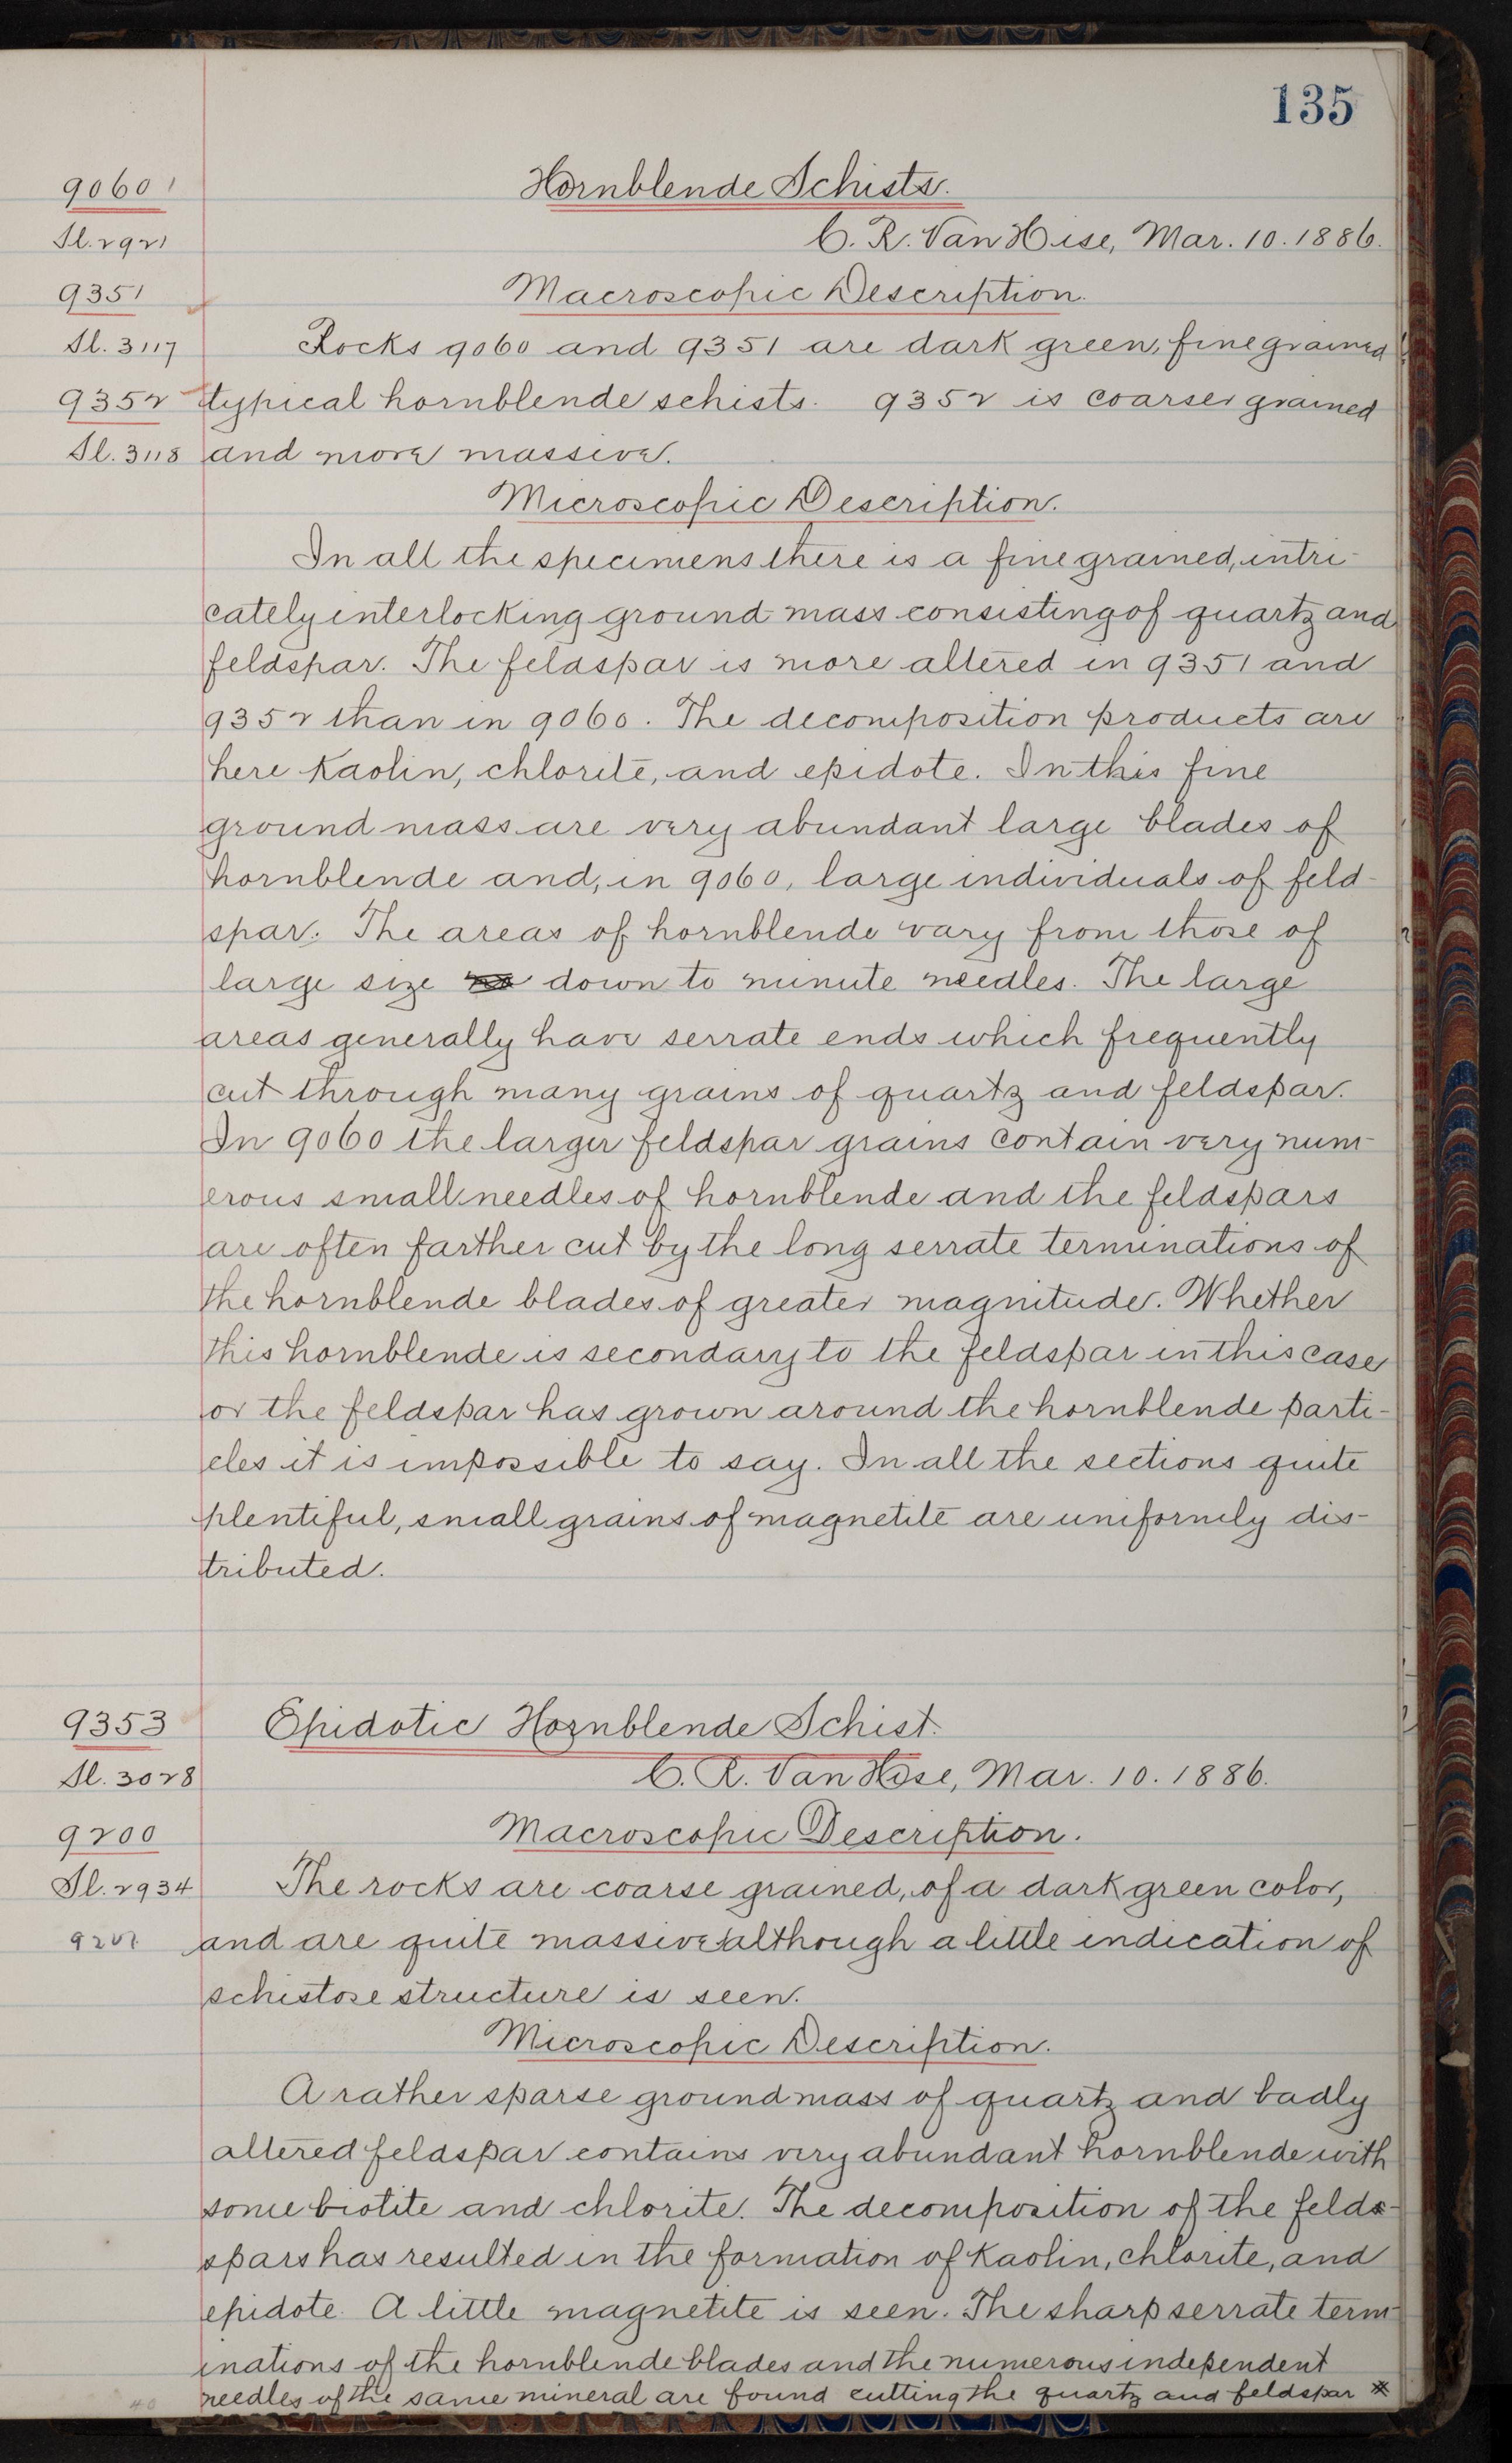 135
9060
Hornblende Schists.
Sl. 2921
C. R. Van Hise, Mar. 10. 1886.
9351
Macroscopic Description.
Sl. 3117
Rocks 9060 and 9351 are dark green, fine grained
9352
typical hornblende schists. 9352 is coarser grained
Sl. 3118
and more massive.
Microscopic Description.
In all the specimens there is a fine grained, intri-
cately interlocking ground mass consisting of quartz and
feldspar. The feldspar is more altered in 9351 and
9352 than in 9060. The decomposition products are
here Kaolin, chlorite, and epidote. In this fine
ground mass are very abundant large blades of
hornblende and, in 9060, large individuals of feld-
spar. The areas of hornblende vary from those of
large size down to minute needles. The large
areas generally have serrate ends which frequently
cut through many grains of quartz and feldspar.
In 9060 the larger feldspar grains contain very num-
erous small needles of hornblende and the feldspars
are often farther cut by the long serrate terminations of
the hornblende blades of greater magnitude. Whether
this hornblende is secondary to the feldspar in this case
or the feldspar has grown around the hornblende parti-
cles it is impossible to say. In all the sections quite
plentiful, small grains of magnetite are uniformly dis-
tributed.
9353
Epidotic Hornblende Schist.
Sl. 3028
C. R. Van Hise, Mar. 10. 1886.
9200
Macroscopic Description.
Sl. 2934
The rocks are coarse grained, of a dark green color,
9201
and are quite massive although a little indication of
schistose structure is seen.
Microscopic Description.
A rather sparse ground mass of quartz and badly
altered feldspar contains very abundant hornblende with
some biotite and chlorite. The decomposition of the felds-
spars has resulted in the formation of Kaolin, chlorite, and
epidote. A little magnetite is seen. The sharp serrate term-
inations of the hornblende blades and the numerous independent
40
needles of the same mineral are found cutting the quartz and feldspar *